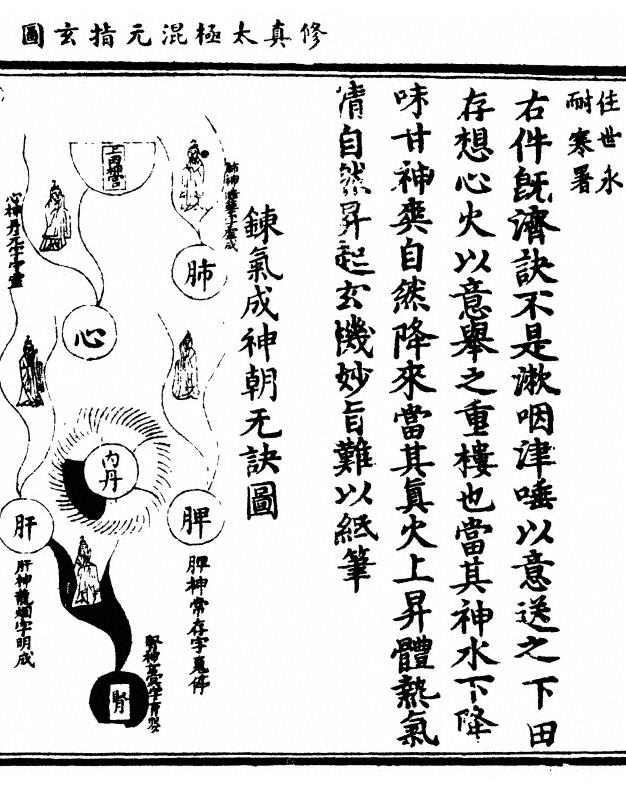 修真太極混元指玄圖
佳世永
耐寒署
右件旣濟訣不是漱咽津唾以意送之下田
存想心火以意舉之重樓也當其神水下降
味甘神爽自然降來當其真火上昇體熱氣
清自然昇起玄機妙旨難以紙筆
鍊氣成神朝无訣圖
肺神皓華字虛成
肺
心神丹元字守靈
心
內丹
脾
脾神常存字魂停
肝
肝神龍烟字明成
腎神玄冥字育嬰
腎